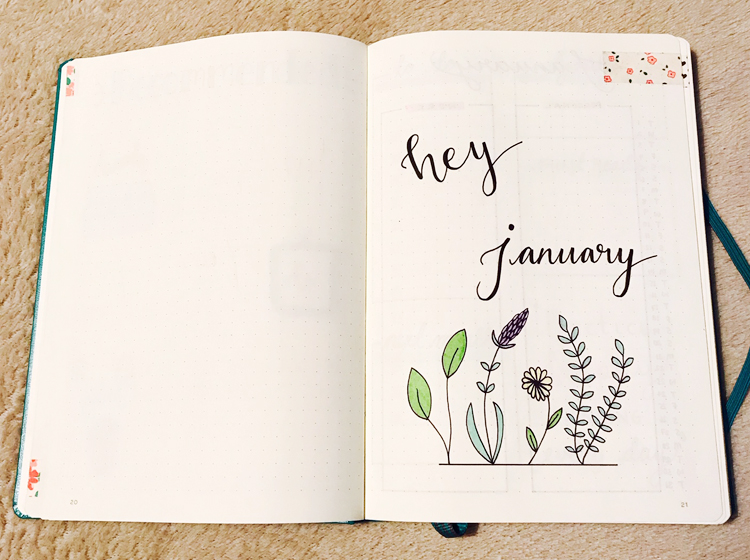 hey
january
20
21